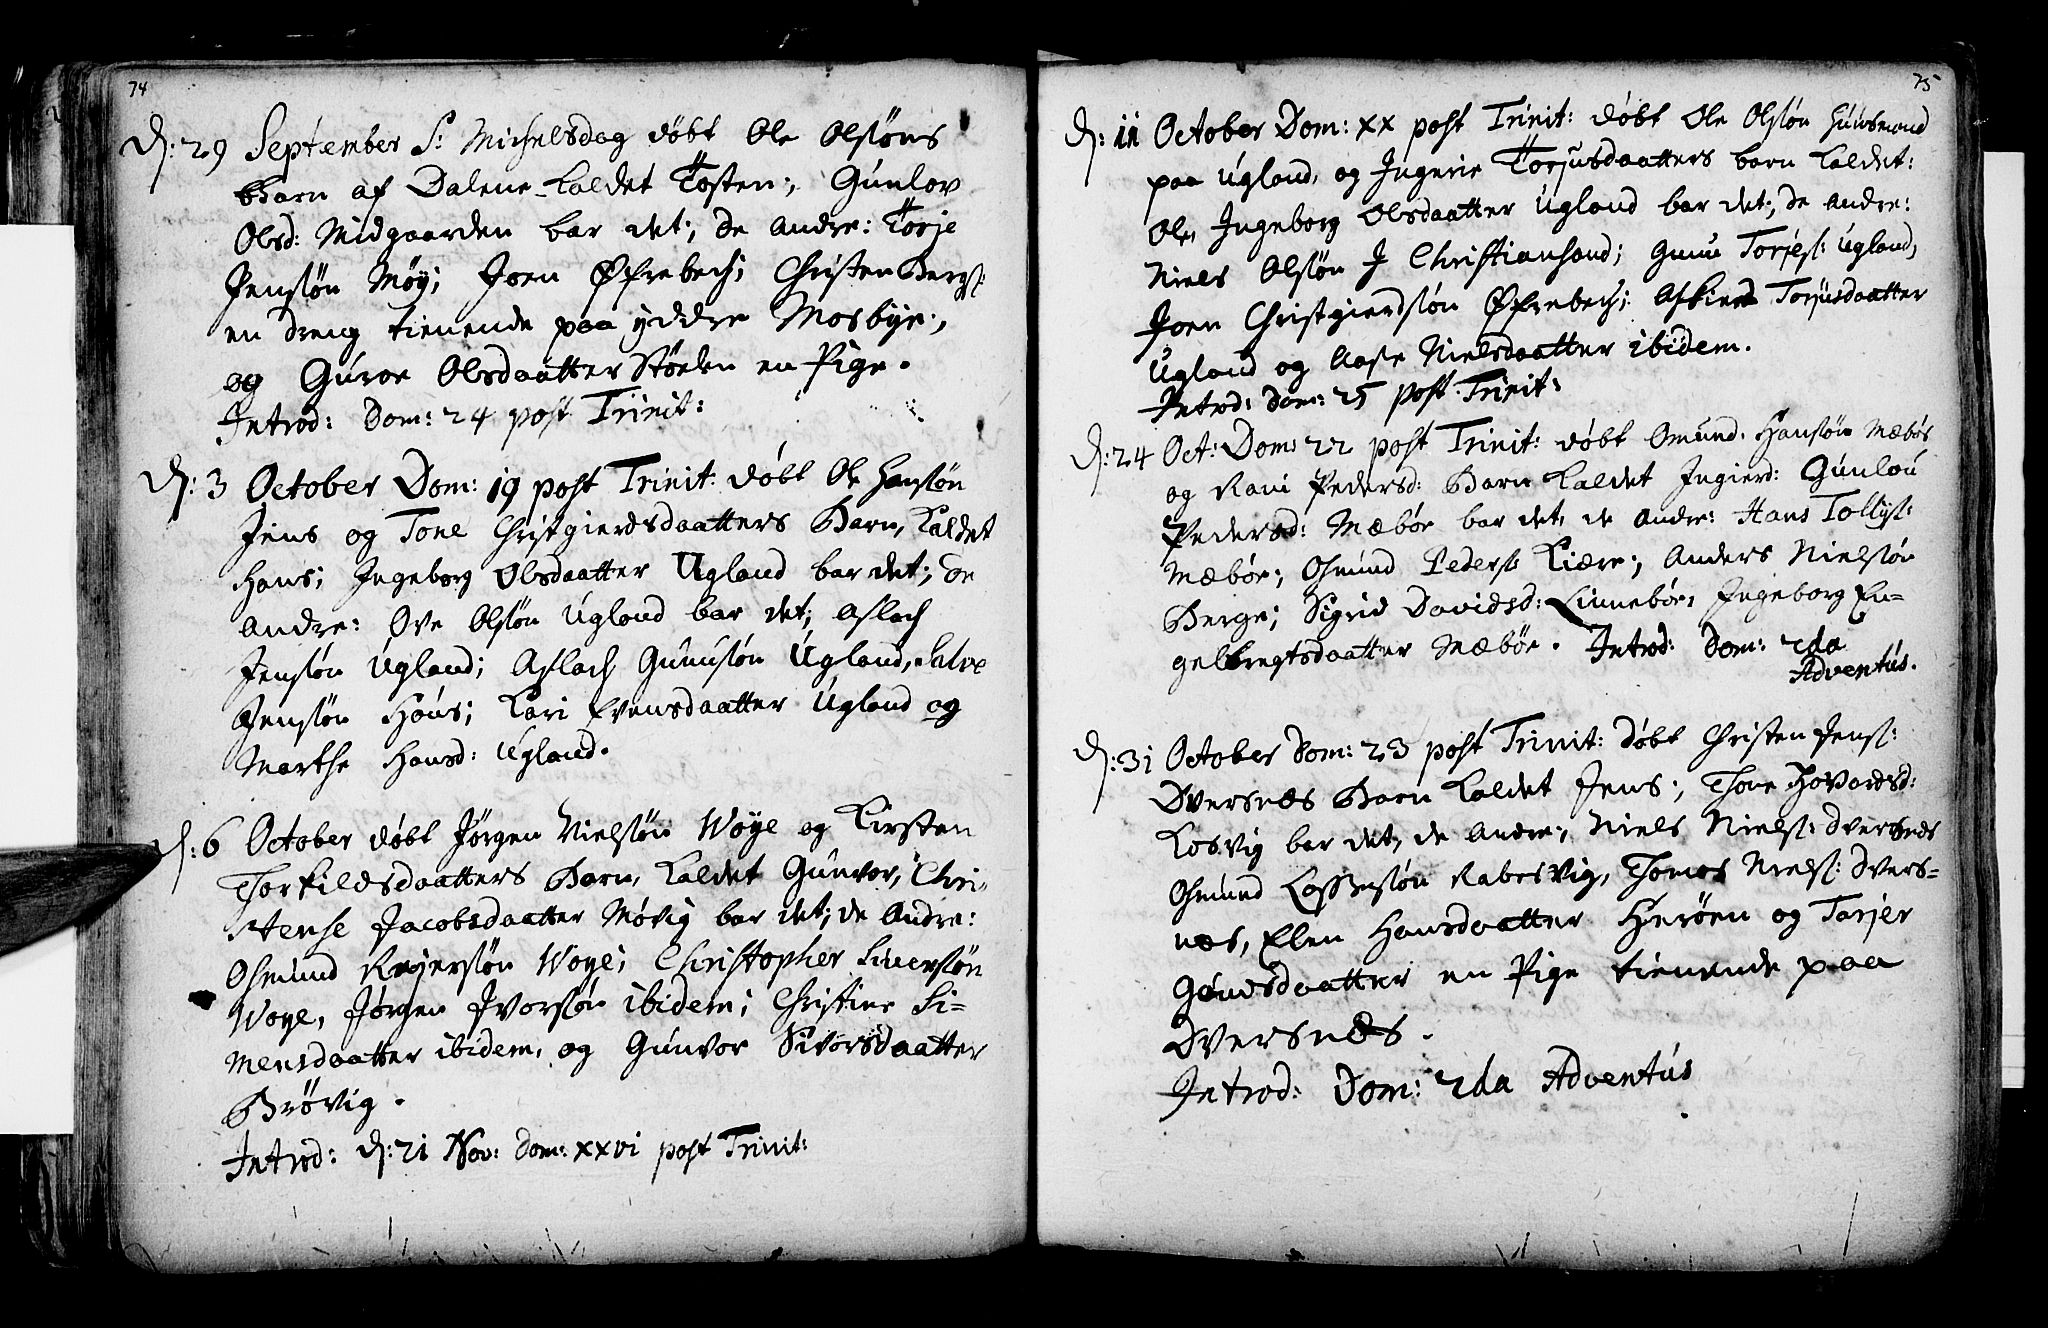 74
D: 29 September S: Michelsdag døbt Ole Olsøns
Barn af Dalene kaldet Tosten; Gunlov
Olsd: Midgaarden bar det; de andre: Torje
Jensøn Møy; Joen Øfrebech; Christen Bergs:
en dreng tienende paa yddre Mosbye;
og Guroe Olsdaatter Støelen en Pige.
Introd: Dom: 24 post Trinit:
D: 3 October Dom: 19 post Trinit: døbt Ole Hansøn
Jens og Tone Christgierdsdaatters Barn, kaldet
Hans; Ingeborg Olsdaatter Ugland bar det; de
andre: Ove Olsøn Ugland bar det; Aslach
Jensøn Ugland; Aslach Gunusøn Ugland, Salve
Jensøn Høus; Kari Evensdaatter Ugland og
Marthe Hansd: Ugland.
D: 6 October døbt Jørgen Nielsøn Woye og Kirsten
Thorkildsdaatters Barn, kaldet Gunvor, Chri-
stense Jacobsdaatter Møvig bar det; de andre:
Osmund Reyersøn Woye; Christopher Siversøn
Woye, Jørgen Ivorsøn ibidem; Christine Si-
mensdaatter ibidem, og Gunvor Sivorsdaatter
Brøvig.
Introd: d: 21 Nov: Dom: xxvi post Trinit:
75
D: 11 October Dom: xx post Trinit: døbt Ole Olsøn Huusmand
paa Ugland, og Ingerie Torjusdaatters barn kaldet:
Ole, Ingeborg Olsdaatter Ugland bar det; de andre:
Niels Olsøn I Christiansand; Gunu Torjes: Ugland,
Joen Christgierdsøn Øfrebech; Askierd Torjusdaatter
Ugland og Aase Nielsdaatter ibidem.
Introd: Dom: 25 post Trinit:
D: 24 Oct: Dom: 22 post Trinit: døbt Omund Hansøn Mæbøe
og Rani Pedersd: Barn kaldet Ingierd: Gunlou
Pedersd: Mæbøe bar det, de andre: Hans Tollys:
Mæbøe; Osmund Peders: Kiære; Anders Nielsøn
Berge; Sigrid Davidsd: Linnebøe, Ingeborg En-
gelbregtsdaatter Mæbøe. Introd: Dom: 2da
Adventus.
D: 31 October Dom: 23 post Trinit: døbt Christen Jens:
Dversnes Barn kaldet Jens; Thore Hovardsd:
Kosvig bar det, de andre; Niels Niels: Dversnes
Osmund Lassesøn Rabersvig, Thomas Niels: Dvers-
nes, Elen Hansdaatter Herøen og Torjer
Gundsdaatter en Pige tienende paa
Dversnes.
Introd: Dom: 2da Adventus